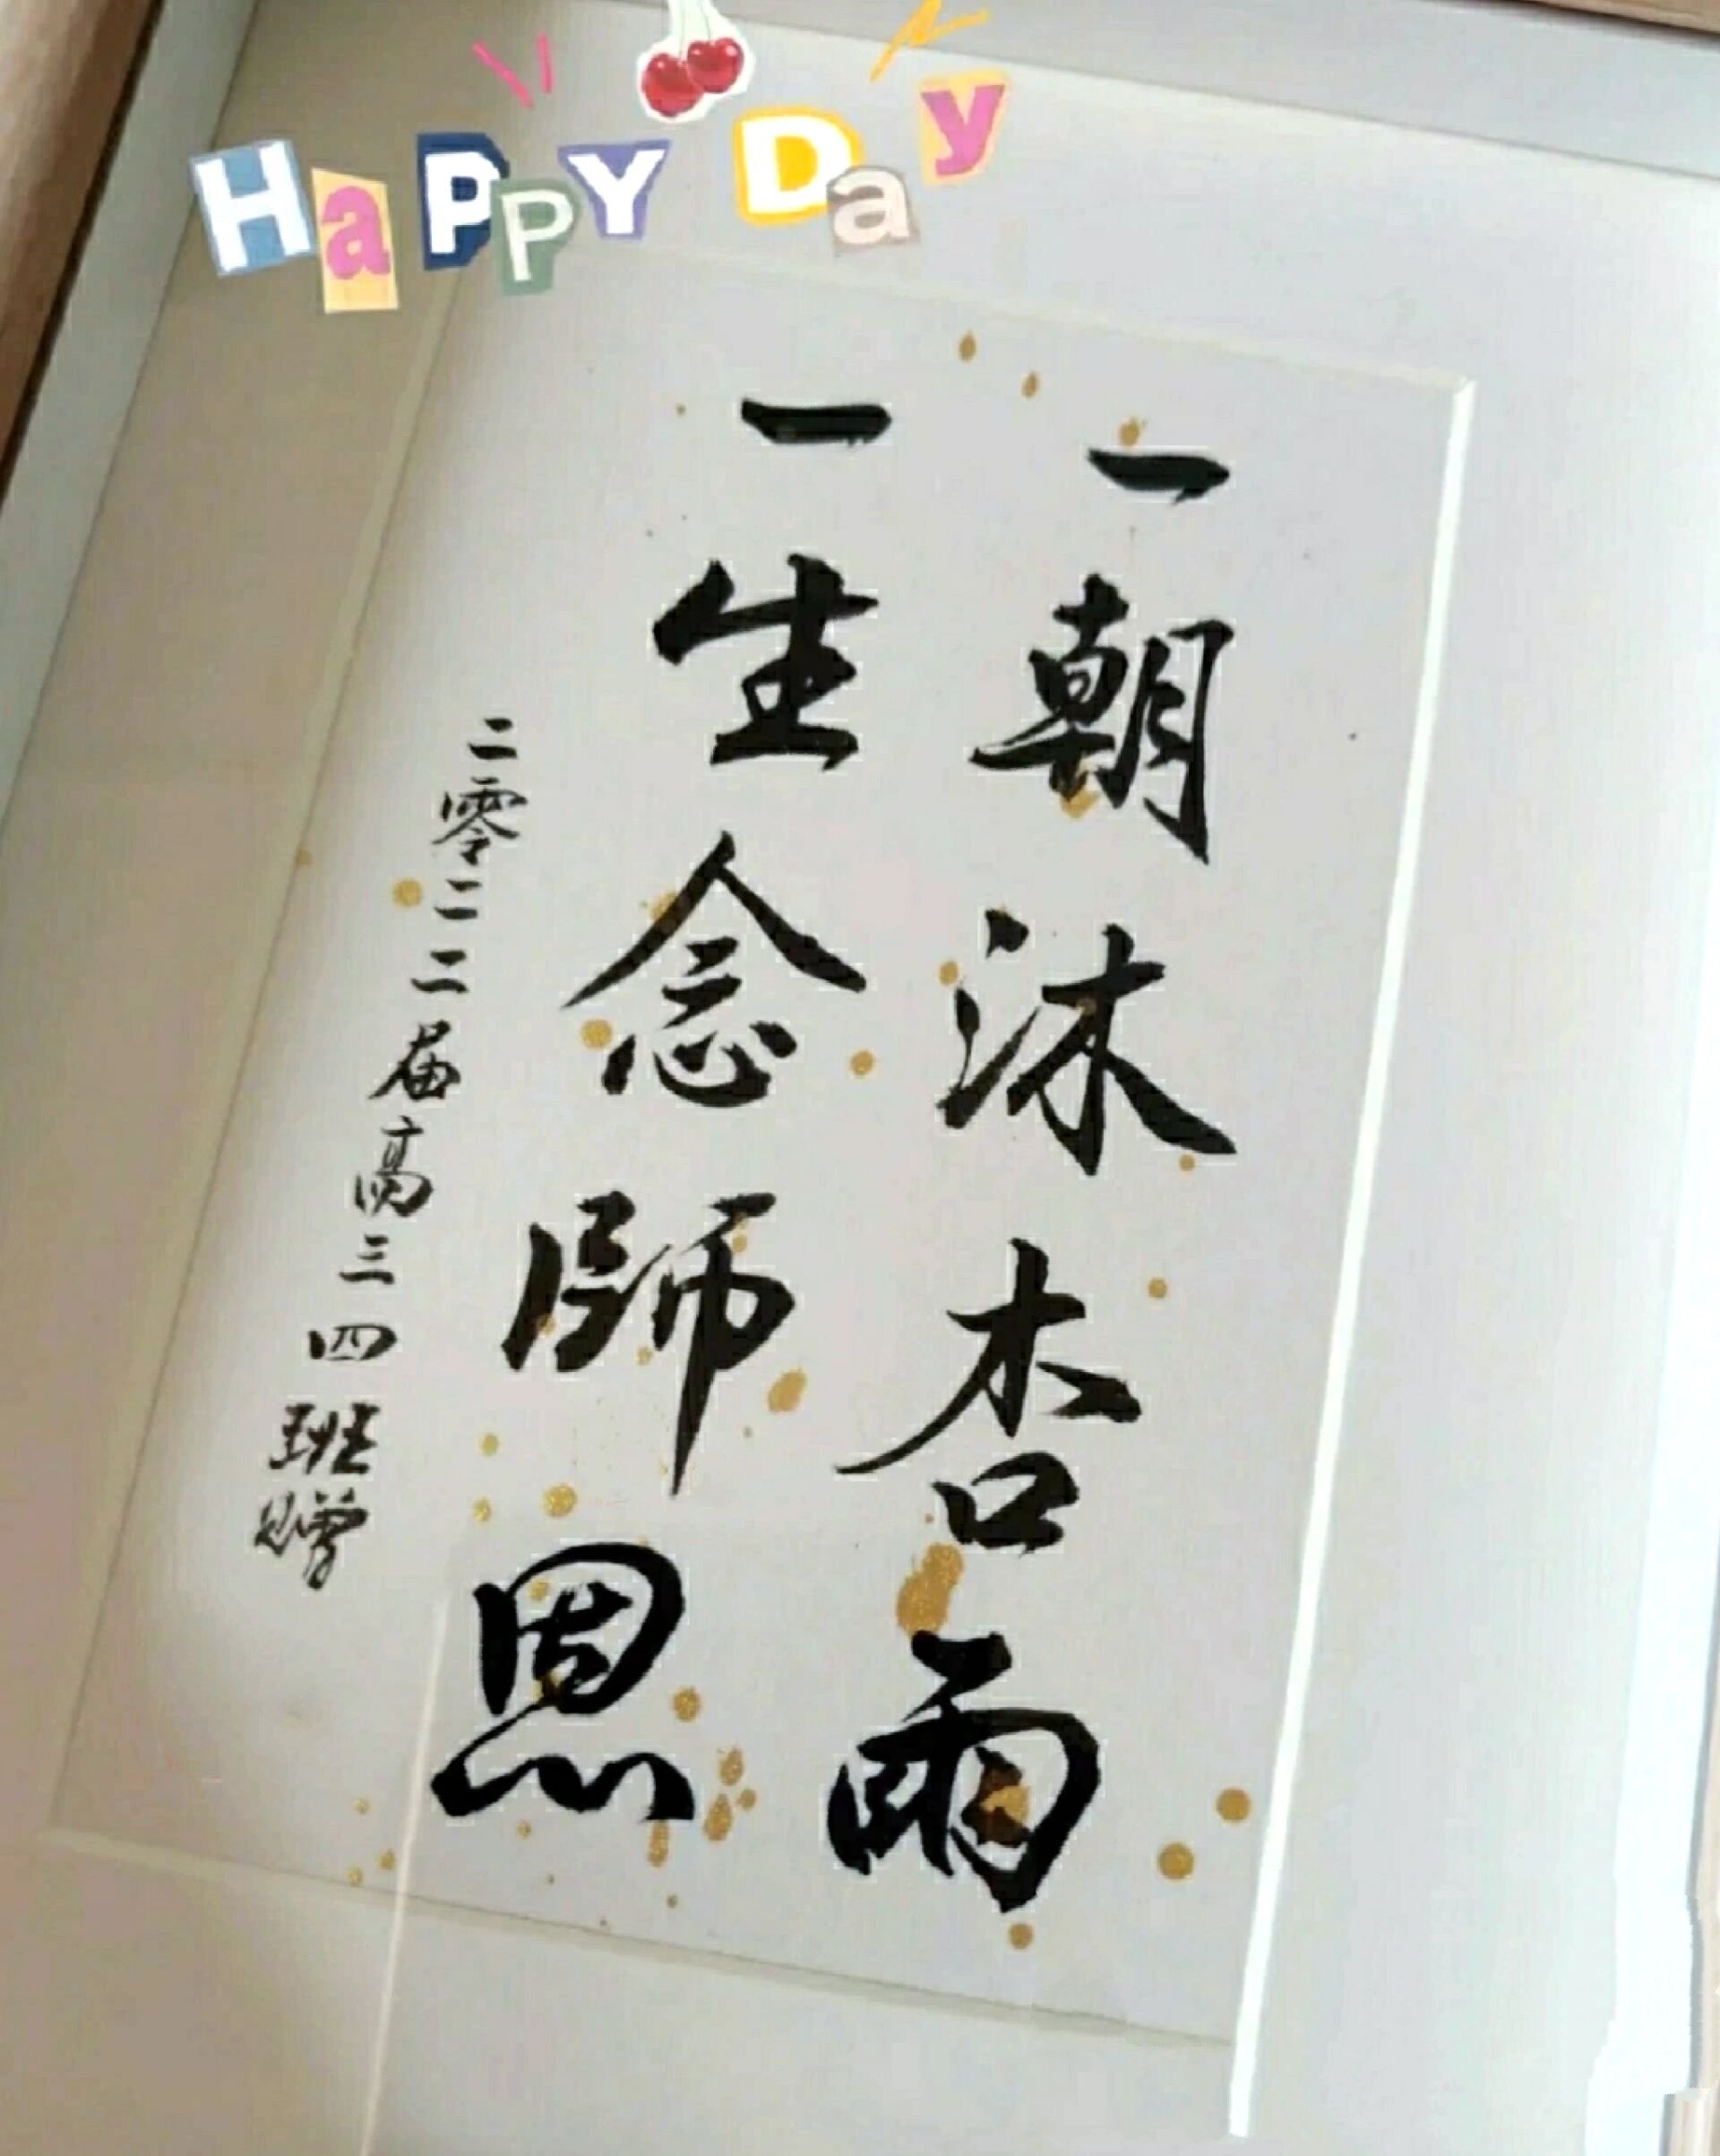 Happy Day
一朝沐杏雨
一生念師恩
二零二二届高三四班赠